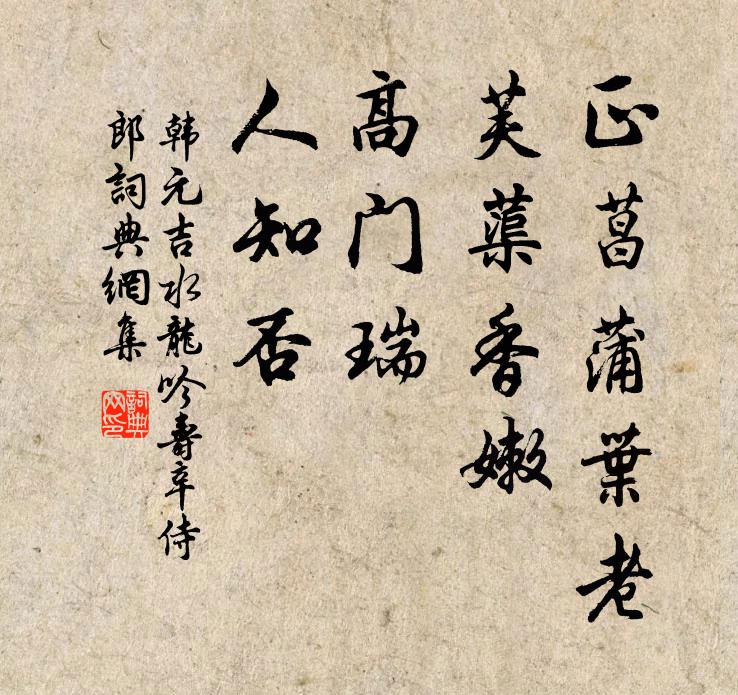 正菖蒲葉老
芙蕖香嫩
高门瑞
人知否
韩元吉水龍吟壽辛侍
郎詞典網集
詞典网印